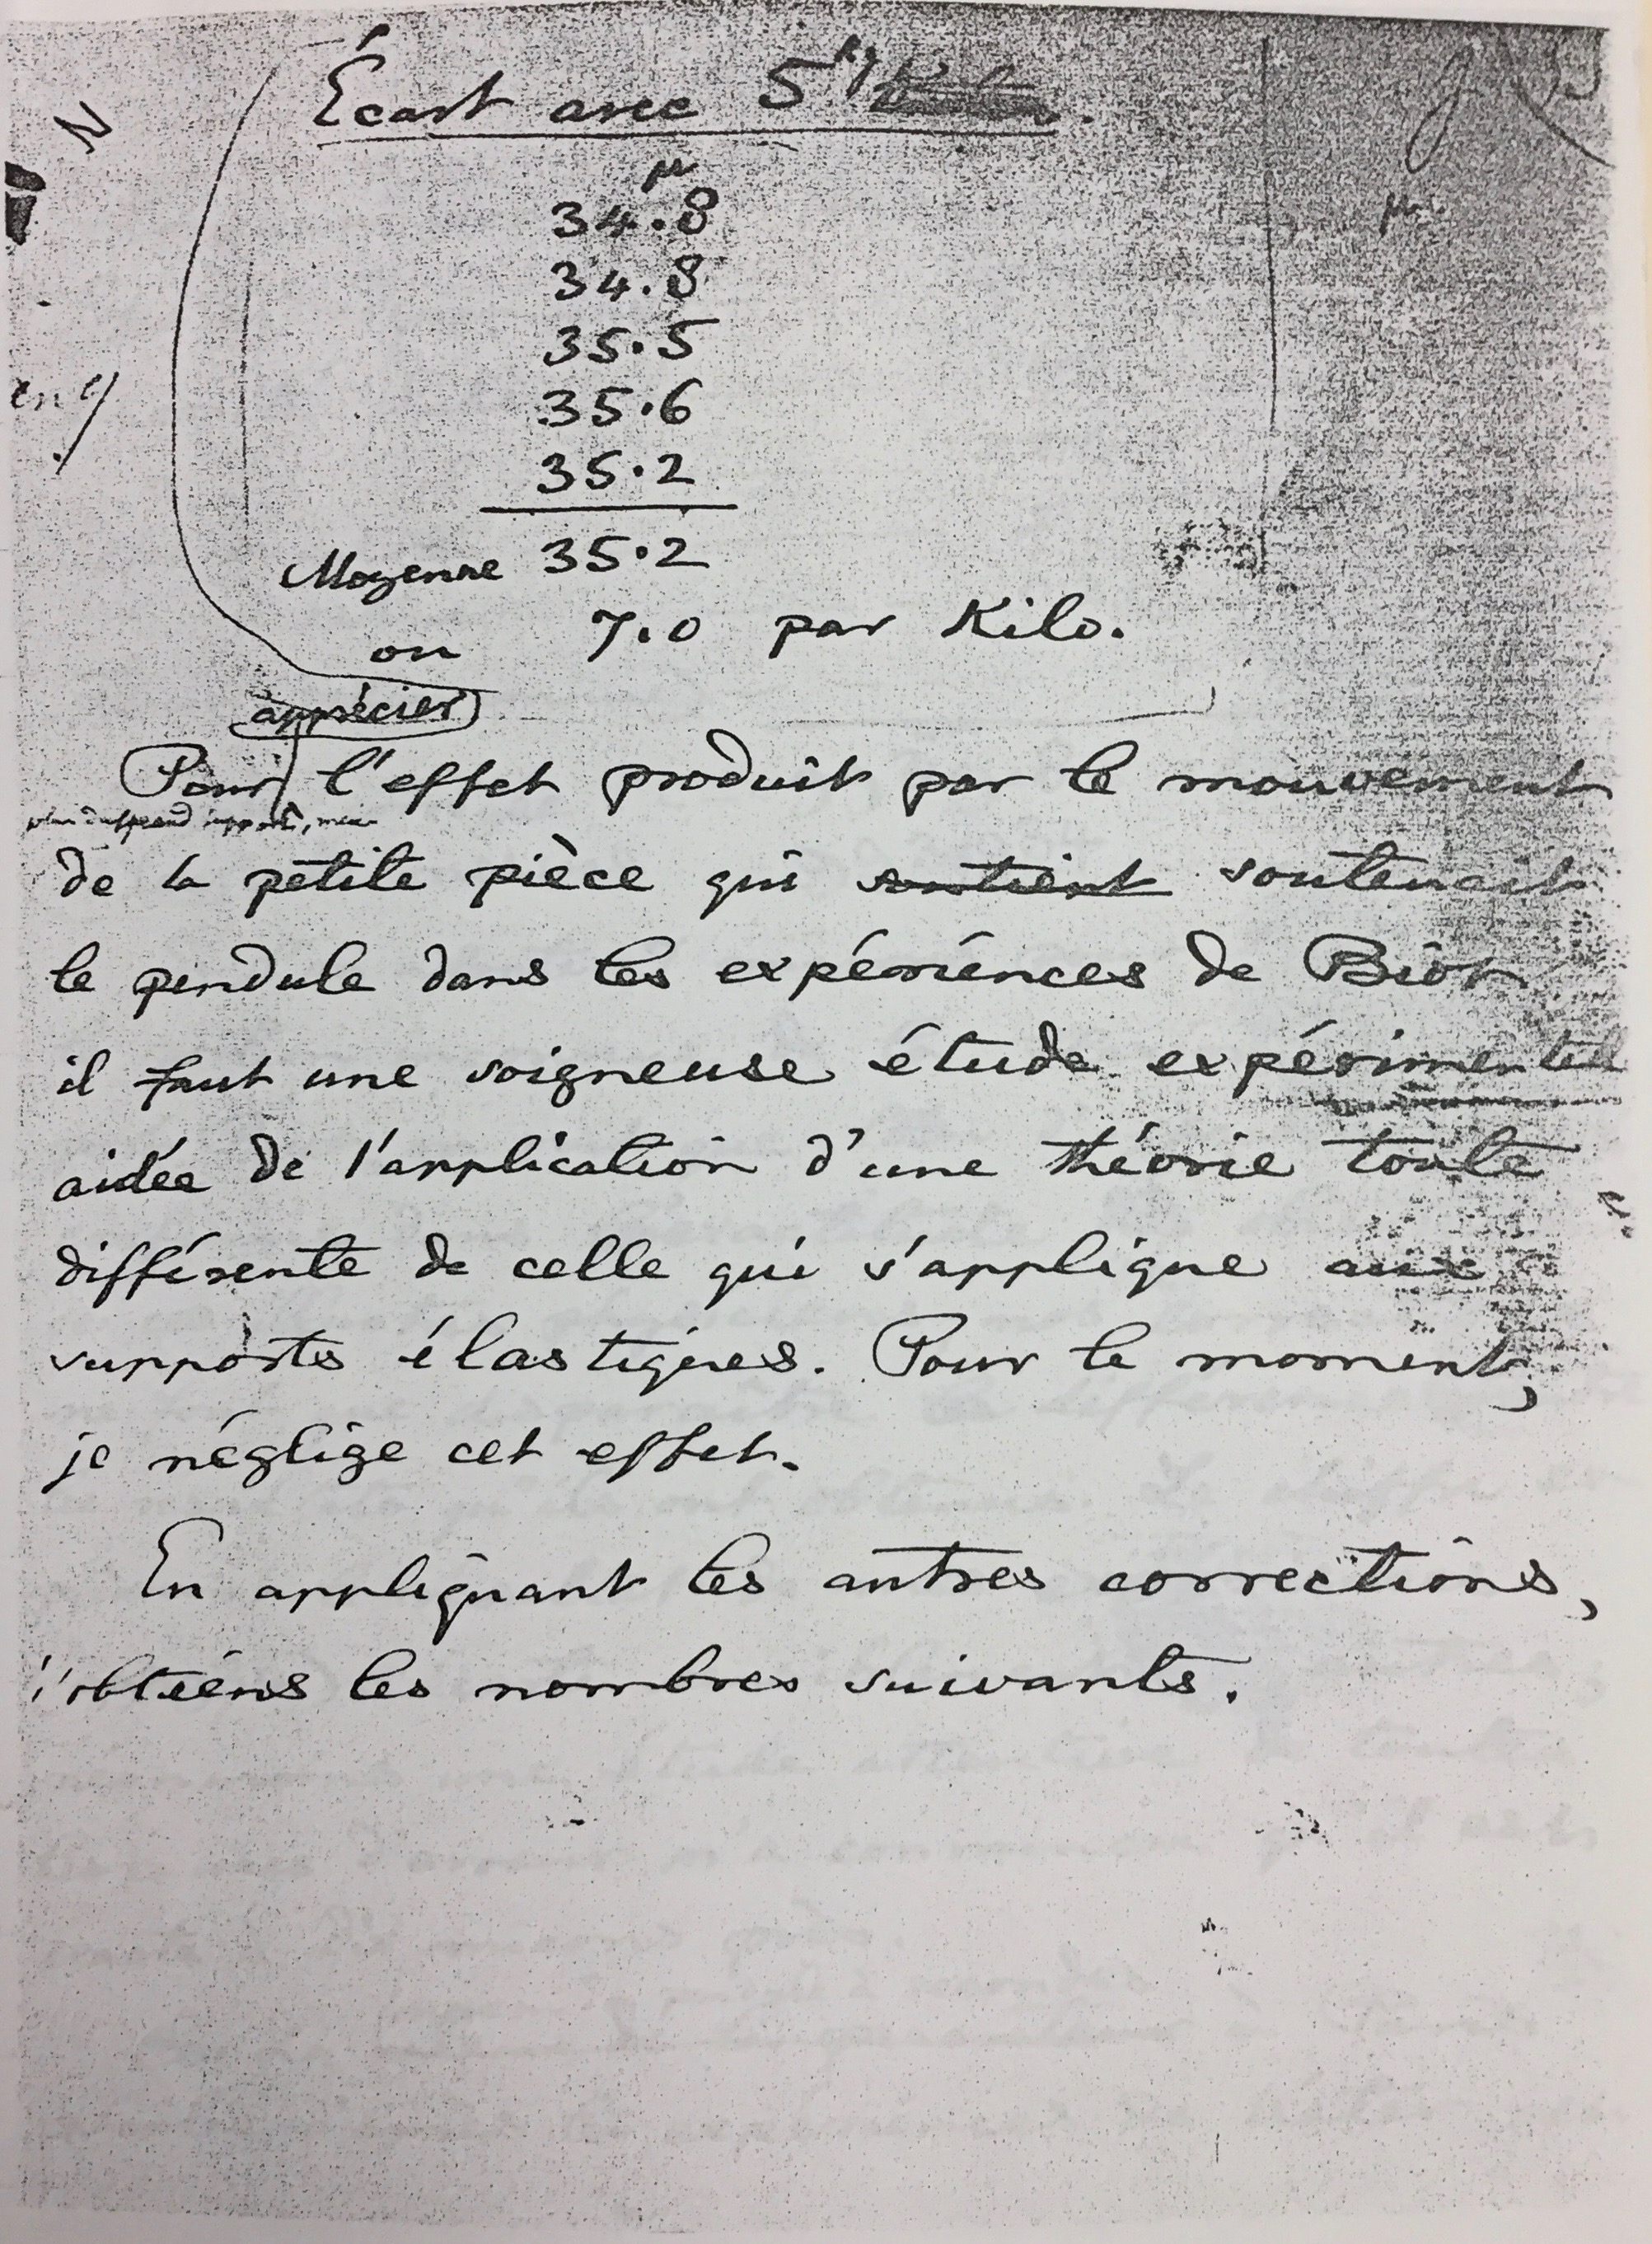 Écart avec 5
μ
34.8
34.8
35.5
35.6
35.2
Moyenne 35.2
ou 7.0 par Kilo.
apprécier
Pour l'effet produit par le mouvement
de la petite pièce qui soutient soutenait
le pendule dans les expériences de Biot
il faut une soigneuse étude expérimentale
aidée de l'application d'une théorie toute
différente de celle qui s'applique aux
supports élastiques. Pour le moment,
je néglige cet effet.
En appliquant les autres corrections,
j'obtiens les nombres suivants.